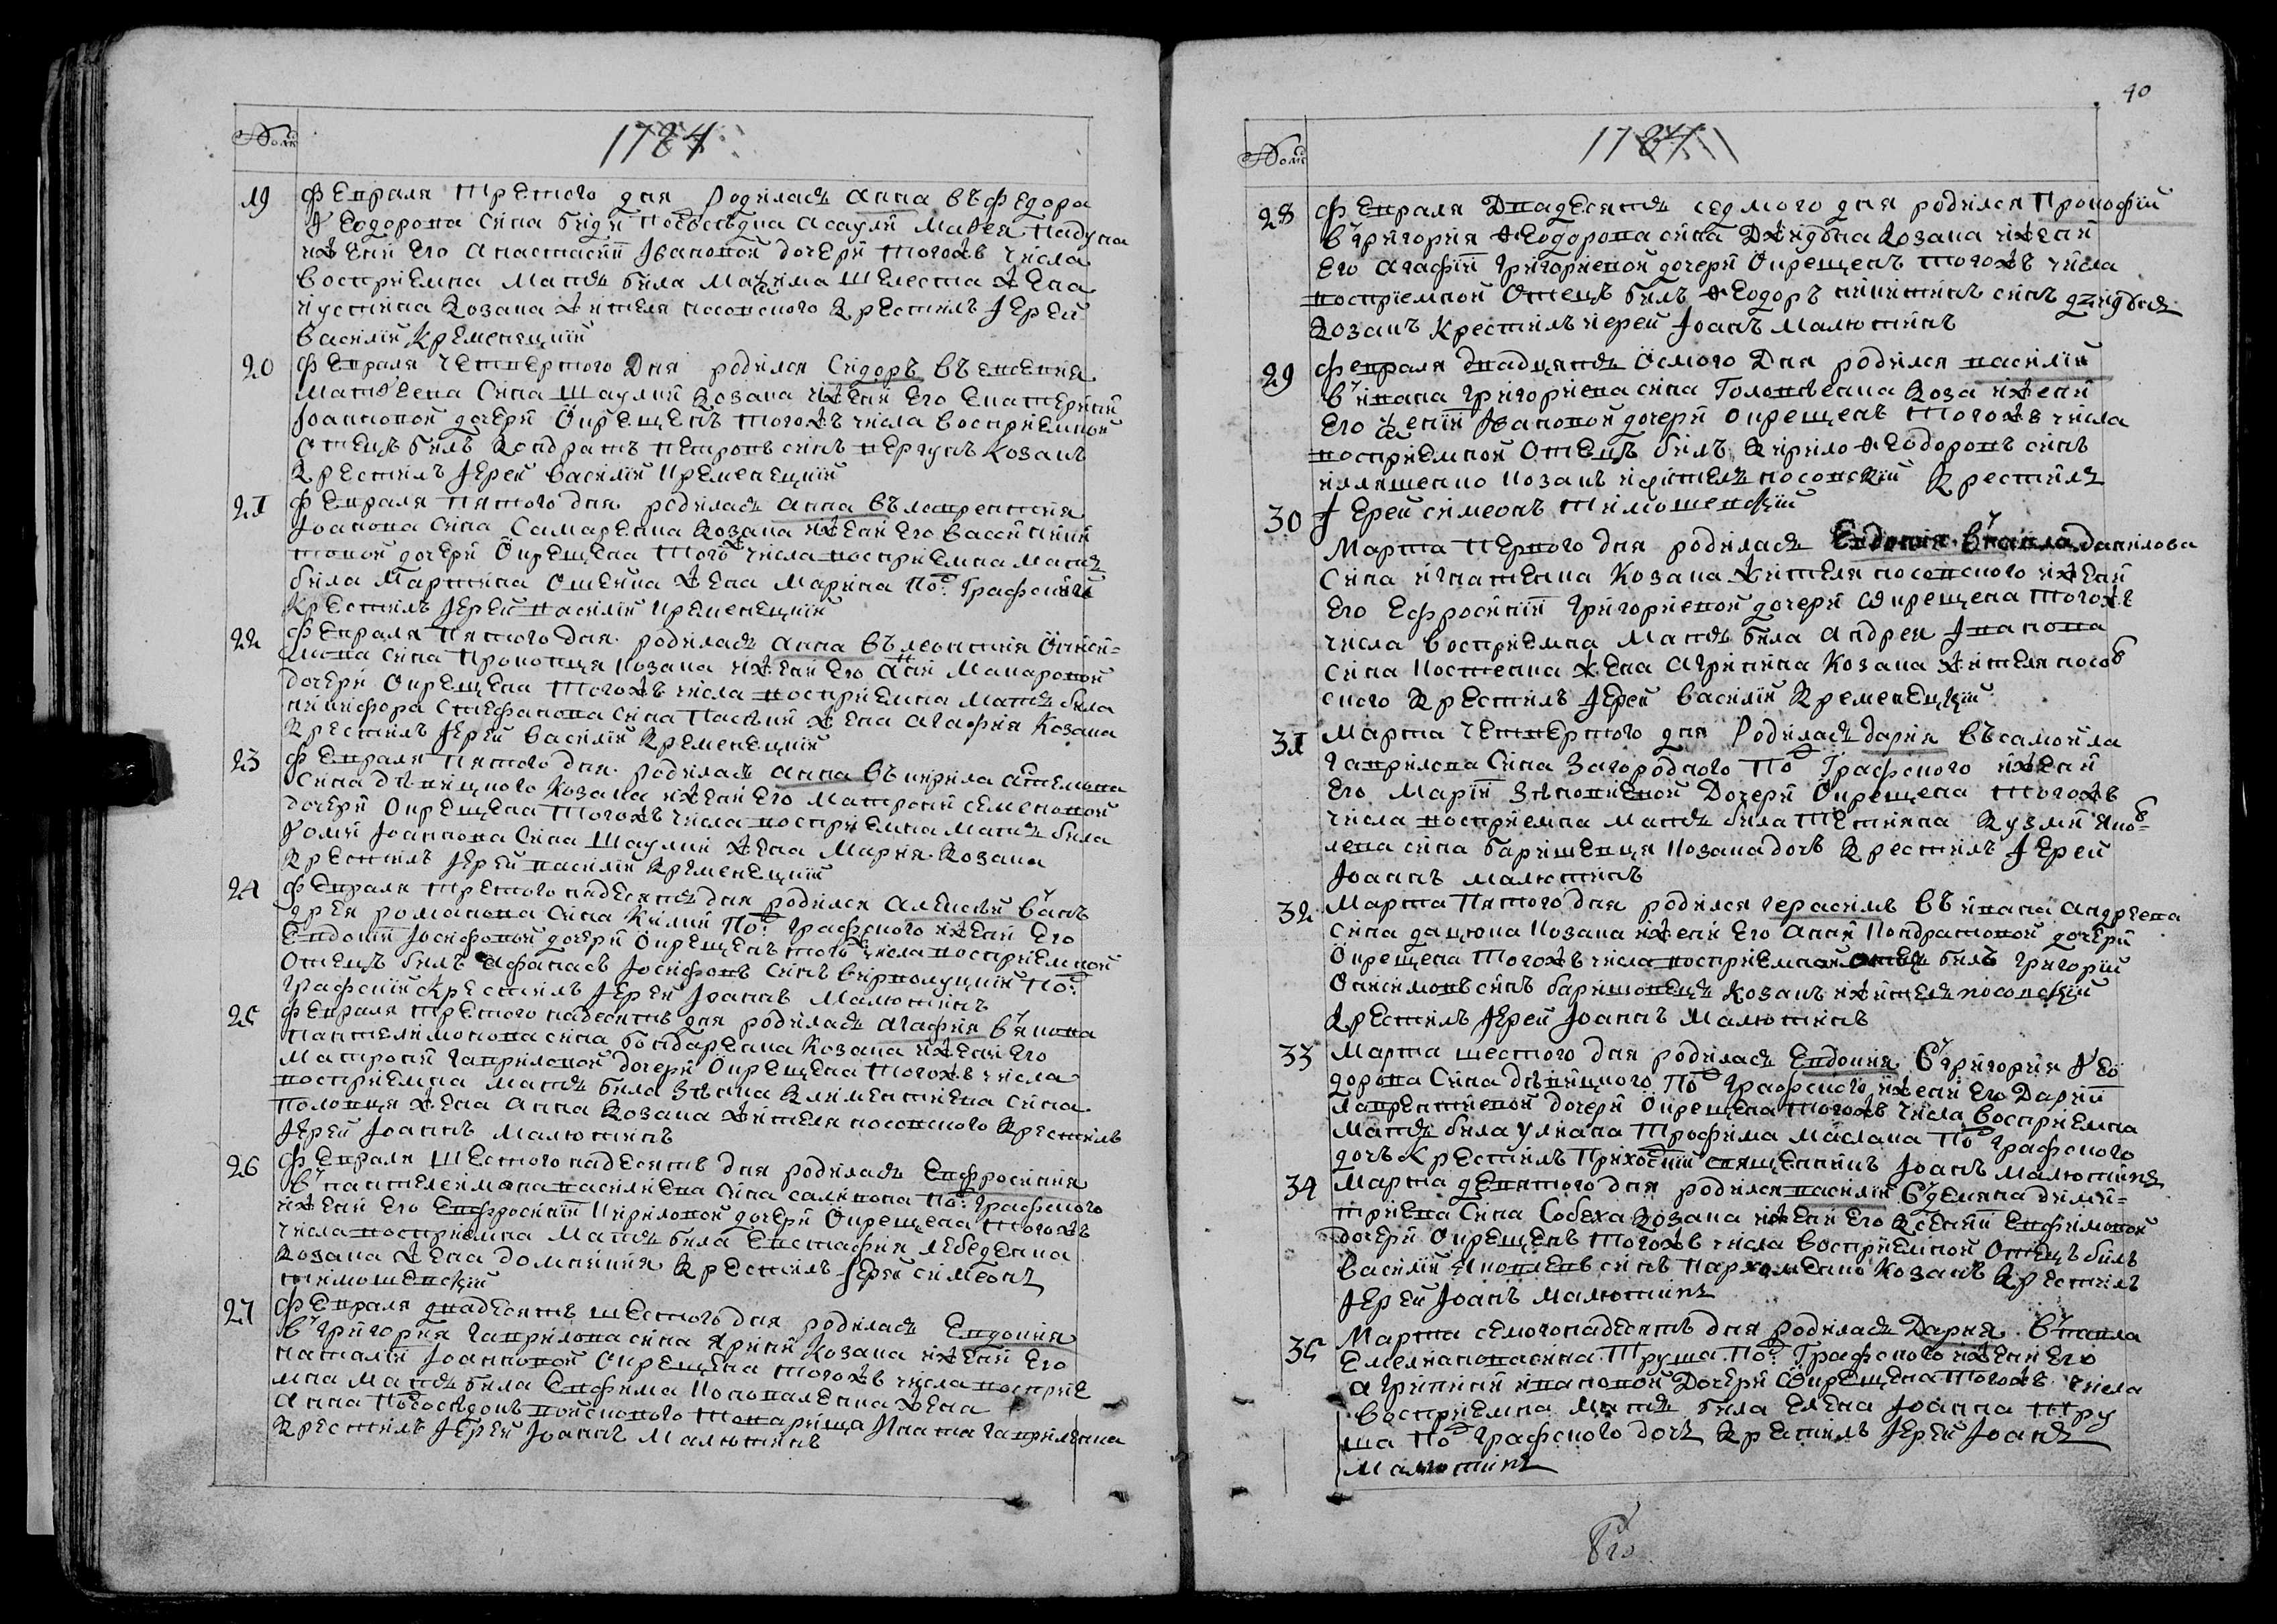 1784
19 Февраля третого дня родилась Анна въ Федора
Ѳеодорова сина биди посъсѣдна асаули Матвея Падуна
и жени его Анастасіи Івановой дочери тогожъ числа
восприемна мать била Мазима Шелеста жена
Иустина козака жителя носовского крестилъ Іерей
Василій Кременецкий
20 Февраля четвертого дня родился Сидоръ въ Евсевия
Матѳеева сина Шаулии козака и жени его Екатерини
Іоанновой дочери окрещенъ тогожъ числа восприемной
отецъ билъ Кондратъ Петровъ синъ козакъ
крестилъ Іерей Василій Кременецкий
21 Февраля пятого дня родилась Анна въ Лаврентия
Іоанова сина Самаренка козака и жени его Васси
товой дочери окрещена того числа восприемна мать
била Мартина жена Марина по графский
крестилъ Іерей Василій Кременецкий
22 Февраля пятого дня родилась Анна въ ЛеонтияОниси-
мова сина Прокопця козака и жени его Анни Макаровой
дочери окрещена тогожъ числа восприемна мать била
Никифора Стефанова сина жена Агафия козака
крестилъ Іерей Василій Кременецкий
23 Февраля пятого дня родилась Анна въ Кирила
сина Дѣвицкого козака и жени его Матрони Семеновой
дочери окрещена тогожъ числа восприемна мать била
Фоми Іоаннова сина Шаулии жена Мария козака
крестилъ Іерей Василій Кременецкий
24 Февраля третогонадесять дня родился Алексѣй в Ан
дрея Романова сина Килии по графского и жени его
Евдокіи Іосифовой дочери окрещенъ того числа восприемной
отецъ билъ Афанасъ Іосифовъ синъ по
графский крестилъ Іерей Іоаннъ Малютинъ
25 Февраля третогонадесять дня родилась Агафия в Якова
Пантелимонова сина Бондаренка козака и жени его
Матрони Гавриловой дочери окрещена тогожъ числа
восприемна мать била Климентиева сина
Половця жена Анна козака жителя носовского крестилъ
Іерей Іоаннъ Малютинъ
26 Февраля шестогонадесять дня родилась Евфросиния
в Пантелеймона Василиева сина по графского
и жени его Евфросинии Кириловой дочери окрещена тогожъ
числа восприемна мать била Евстафия Лебеденка
козака жена Домникия крестилъ Іерей Симеонъ
Тимошевский
27 Февраля двадесять шестого дня родилась Евдокия
в Григория Гаврилова сина Ярини козака и жени его
Наталіи Іоанновой окрещена тогожъ числа восприе
мна мать била Евфима Коноваленка жена
Анна войскового товариша Гавриленка
крестилъ Іерей Іоаннъ Малютинъ
40
1784
28 Февраля двадесять седмого дня родился Прокофій
в Григория Ѳеодорова сина Джидбна козака и жени
его Агафіи Григориевой дочери окрещенъ тогожъ числа
восприемной отецъ билъ Ѳеодоръ Никитинъ синъ
козакъ крестилъ иерей Іоанъ Малютинъ
29 Февраля двадцять осмого дня родился Василій
в Ивана Григориева сина Головченка коза и жени
его Івановой дочери окрещенъ тогожъ числа
восприемной отецъ билъ Кирило Ѳеодоровъ синъ
Иляшенко козакъ и житель носовский крестилъ
Іерей Симеонъ Тимошевский
30 Марта первого дня родилась Евдокия в Павла Данилова
сина Игнатенка козака жителя носовского и жени
его Ефросиніи Григориевой дочери окрещена тогожъ
числа восприемна мать била Андрея Іванова
сина Костенка жена Агрипина козака жителя носов
ского крестилъ Іерей Василій Кременецкий
31 Марта четвертого дня родилась Дария въ Самойла
Гаврилова сина Загородного по графского и жени
его Маріи Зѣновиевой дочери окрещена тогожъ
числа восприемна мать била Тетияна Кузми Яков-
лева сина Баришевця козака дочь крестилъ Іерей
Іоаннъ Малютинъ
32 Марта пятого дня родился Герасимъ въ Ивана Андреева
сина Дацюна козака и жени его Анни Кондратовой дочери
окрещена тогожъ числа восприемной отец билъ Григорий
Онисимовъ синъ Баришовецъ козакъ и житель носовский
крестилъ Іерей Іоаннъ Малютинъ
33 Марта шестого дня родилась Евдокия в Григория Ѳео
дорова сина Дѣвицкого по графского и жени его Дарии
Лаврентиевой дочери окрещена тогожъ числа восприемна
мать била Улиана Трофима Маслака по графского
дочъ крестилъ приходский священникъ Іоанъ Малютинъ
34 Марта девятого дня родился Василій в Демяна Дими-
триева сина Собеха козака и жени его Ксении Евфимовой
дочери окрещенъ тогожъ числа восприемной отецъ билъ
Василій Яковлевъ синъ Пархоменко козакъ крестилъ
Іерей Іоанъ Малютинъ
35 Марта семогонадесять дня родилась Дария в Павла
Емелиановасина Труша по графского и жени его
Агрипини Ивановой дочери окрещена тогожъ числа
восприемна мать била Елена Іоанна Тру
ша по графского дочь крестилъ Іерей Іоанъ
Малютинъ